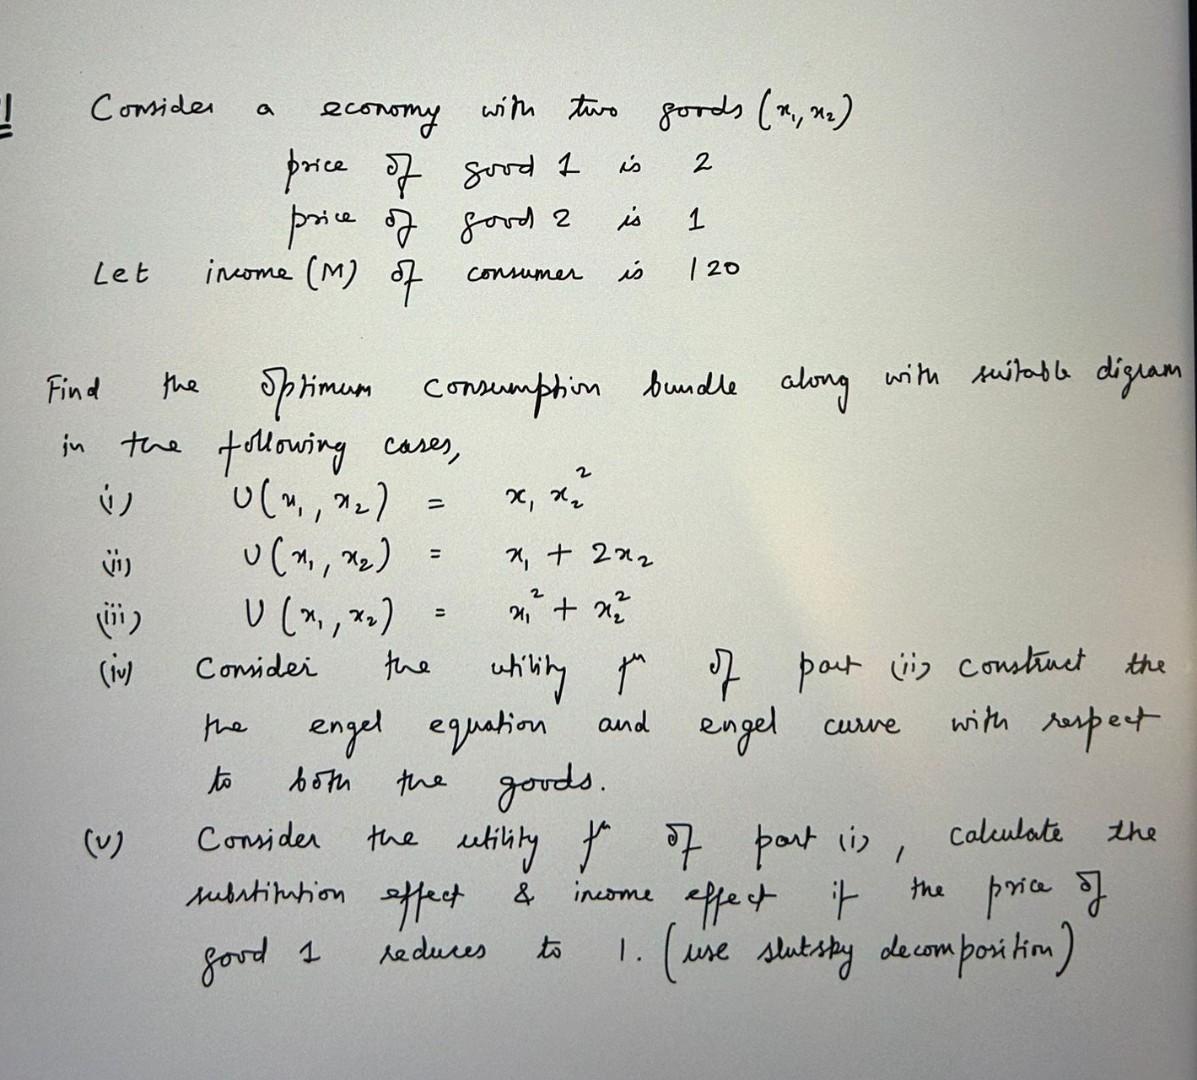 1 Consider a economy with two goods (x₁, x₂)
price of good 1 is 2
price of good 2 is 1
Let income (M) of consumer is 120
Find the Optimum Consumption bundle along with suitable digram
in the following cases,
(i) U(x₁, x₂) = x₁ x₂²
(ii) U(x₁, x₂) = x₁ + 2x₂
(iii) U(x₁, x₂) = x₁² + x₂²
(iv) Consider the utility fⁿ of part (ii) construct the
the engel equation and engel curve with respect
to both the goods.
(v) Consider the utility fⁿ of part (i), calculate the
substitution effect & income effect if the price of
good 1 reduces to 1. (use slutsky decomposition)